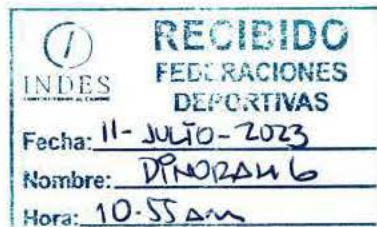 RECIBIDO
INDES
FEDERACIONES
DEPORTIVAS
Fecha: 11-JULIO-2023
Nombre: DINORAH G
Hora: 10-55 Am